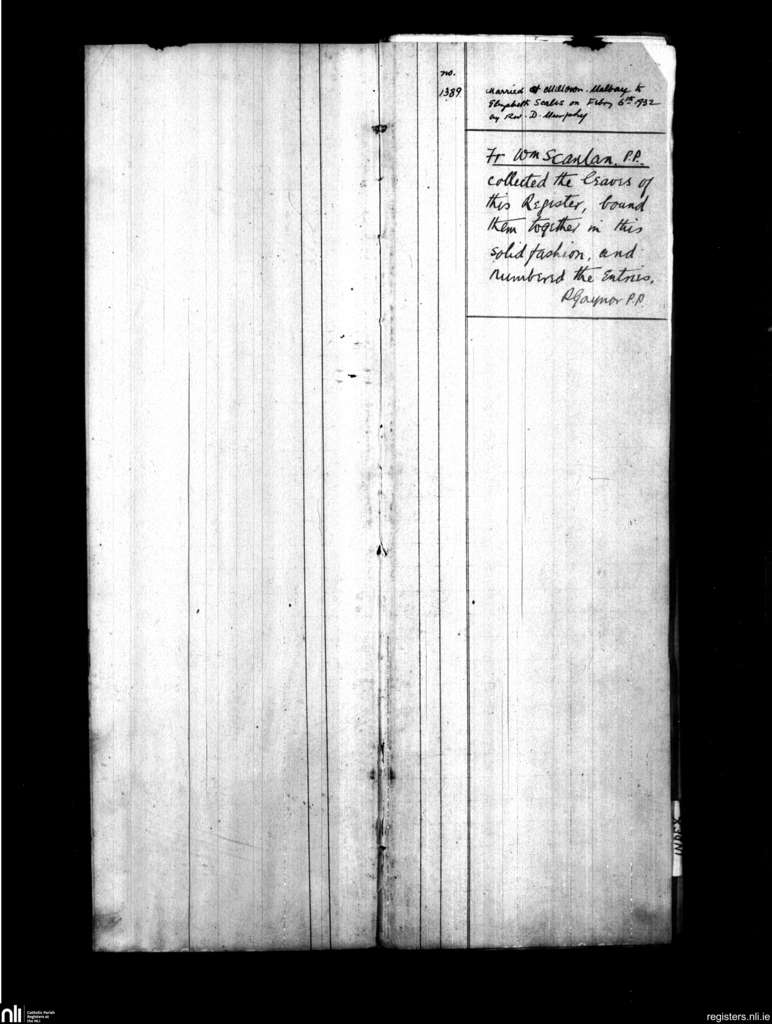 no.
1389
Married at Milltown-Malbay to
Elizabeth Scales on Feby 6th 1932
by Rev. D. Murphy
Fr Wm Scanlan, P.P.
collected the leaves of
this Register, bound
them together in this
solid fashion, and
numbered the Entries.
P Gaynor P.P.
INDEX
nli
Catholic Parish
Registers at
the NLI
registers.nli.ie